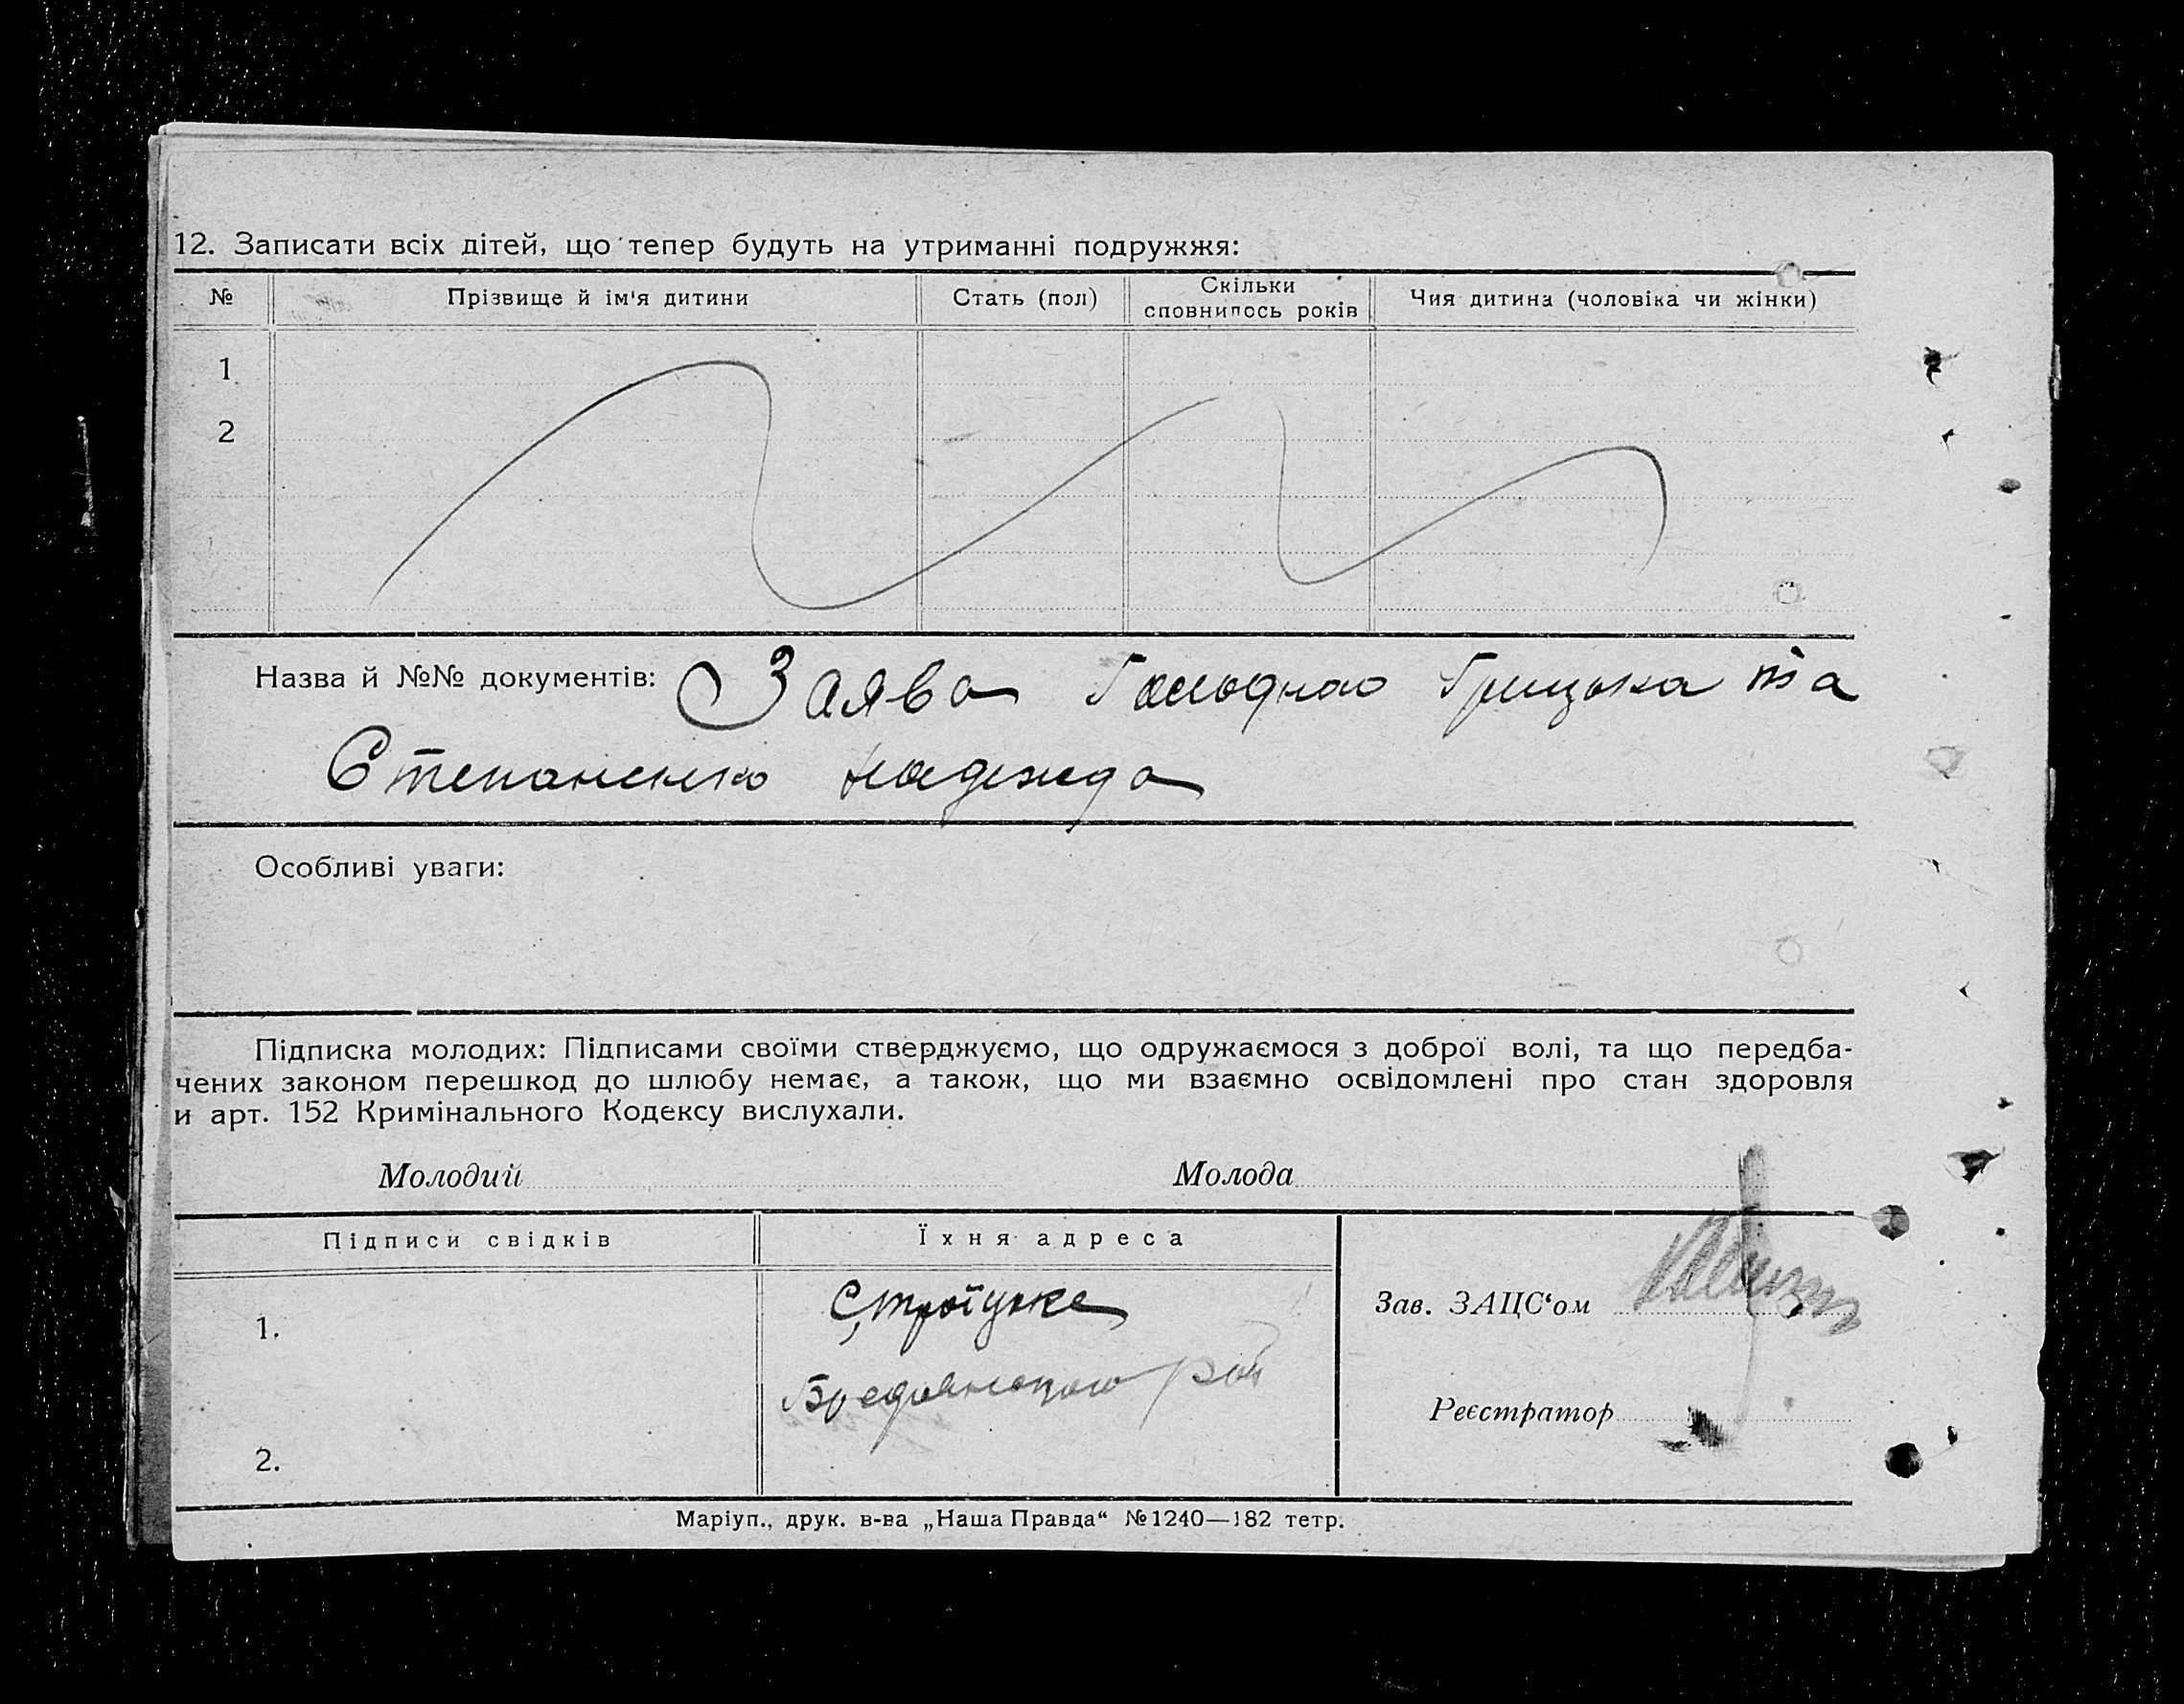 12. Записати всіх дітей, що тепер будуть на утриманні подружжя:
№ Прізвище й ім'я дитини Стать (пол) Скільки сповнилось років Чия дитина (чоловіка чи жінки)
1
2
Назва й №№ документів: Заява Грицька та
Степаненко надежда
Особливі уваги:
Підписка молодих: Підписами своїми стверджуємо, що одружаємося з доброї волі, та що передба-
чених законом перешкод до шлюбу немає, а також, що ми взаємно освідомлені про стан здоровля
и арт. 152 Кримінального Кодексу вислухали.
Молодий Молода
Підписи свідків Їхня адреса
1.
Зав. ЗАЦС‘ом
Реєстратор
2.
Маріуп., друк. в-ва „Наша Правда“ №1240—182 тетр.